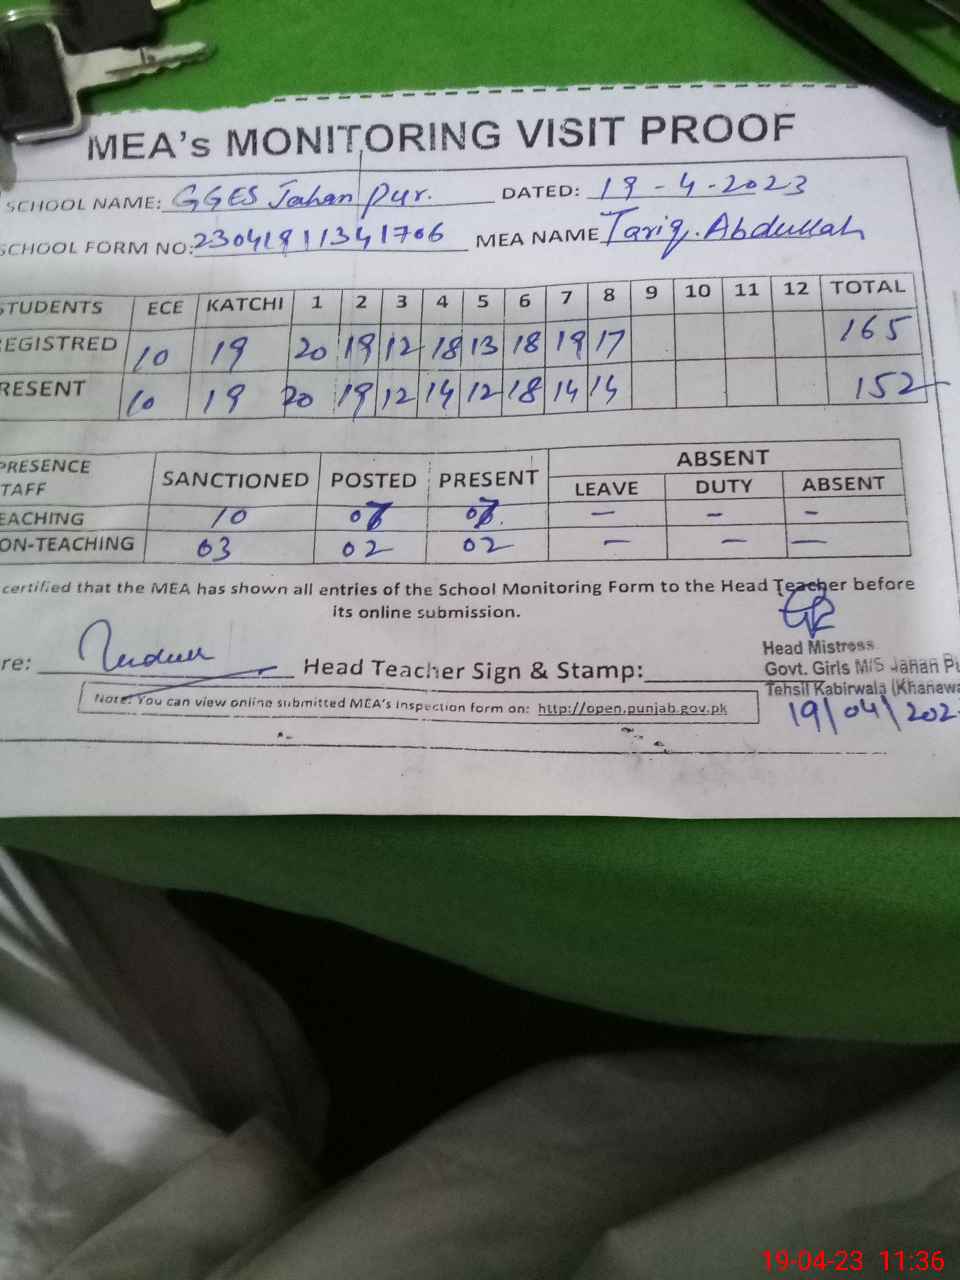 MEA's MONITORING VISIT PROOF
SCHOOL NAME: GGES Jahan Pur. DATED: 19-4-2023
SCHOOL FORM NO: 23041911341706 MEA NAME Tariq. Abdullah
STUDENTS ECE KATCHI 1 2 3 4 5 6 7 8 9 10 11 12 TOTAL
EGISTRED 10 19 20 19 12 18 13 18 19 17 165
RESENT 10 19 20 19 12 14 12 18 14 14 152
PRESENCE SANCTIONED POSTED PRESENT ABSENT
TAFF LEAVE DUTY ABSENT
EACHING 10 - - -
ON-TEACHING 03 02 02 - - -
certified that the MEA has shown all entries of the School Monitoring Form to the Head Teacher before
its online submission.
re: Head Teacher Sign & Stamp:
Head Mistress
Govt. Girls M/S Jahan Pu
Tehsil Kabirwala (Khanewa
19/04/202
Note: You can view online submitted MEA's Inspection form on: http://open.punjab.gov.pk
19-04-23 11:36